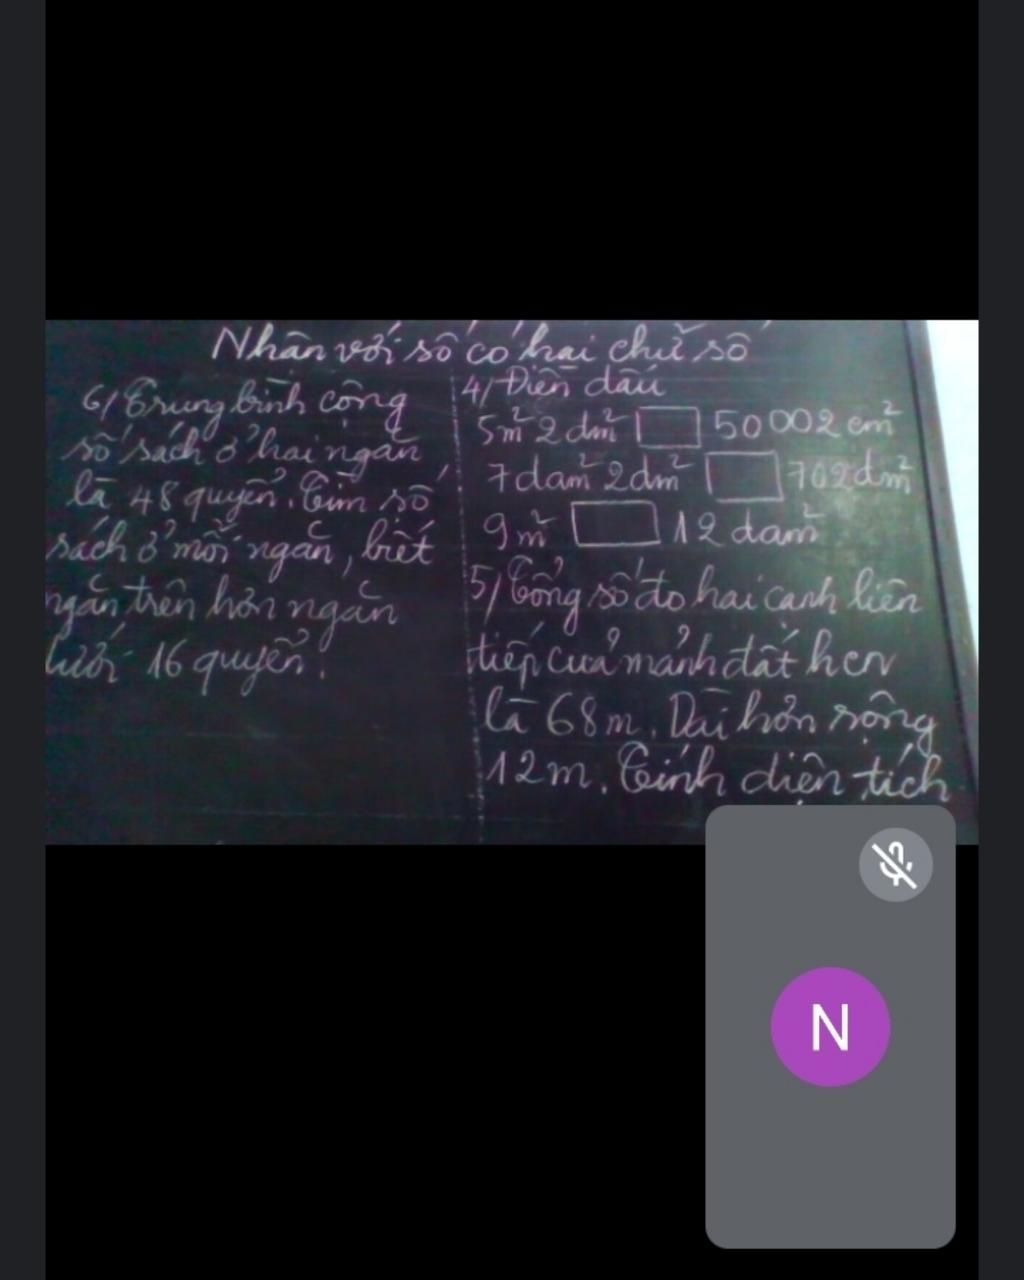 Nhân với số có hai chữ số
6/ Trung bình cộng
số sách ở hai ngăn
là 48 quyển. Tìm số
sách ở mỗi ngăn, biết
ngăn trên hơn ngăn
dưới 16 quyển.
4/ Điền dấu
5m² 2dm² 50002 cm²
7dam² 2dm² 702dm²
9m² 12 dam²
5/ Tổng số đo hai cạnh liên
tiếp của mảnh đất hcn
là 68m. Dài hơn rộng
12m. Tính diện tích
N